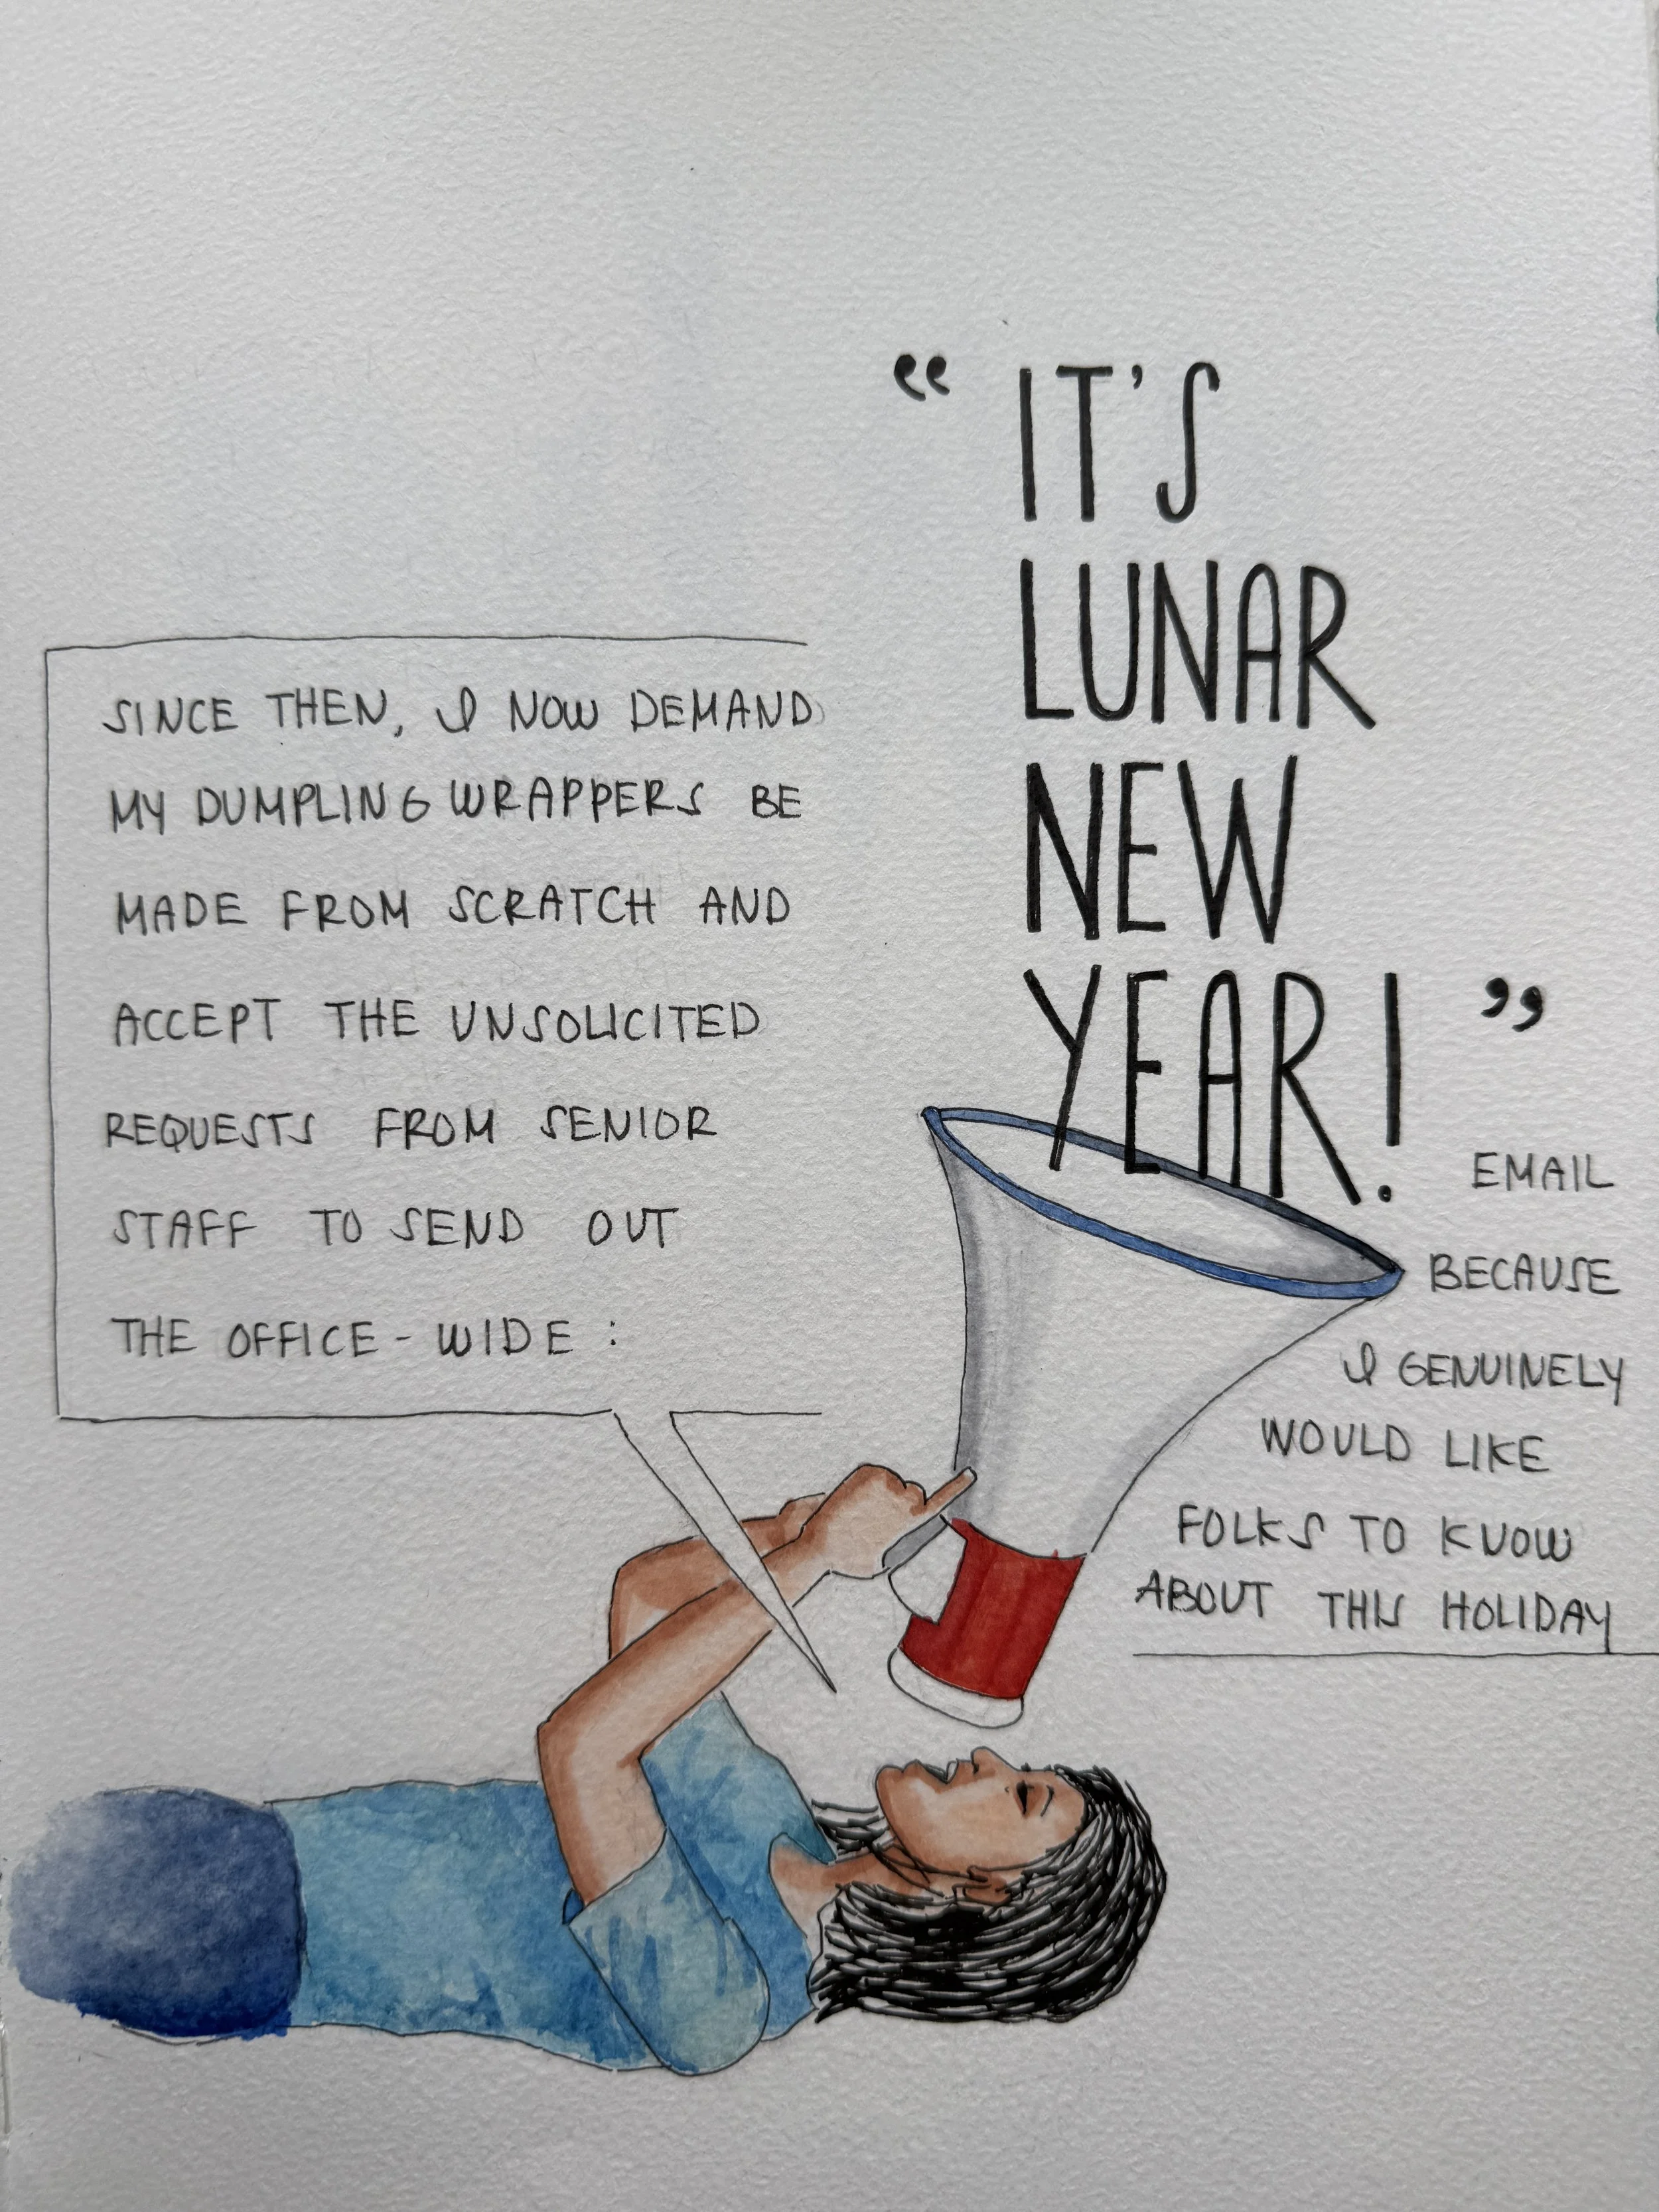 SINCE THEN, I NOW DEMAND
MY DUMPLING WRAPPERS BE
MADE FROM SCRATCH AND
ACCEPT THE UNSOLICITED
REQUESTS FROM SENIOR
STAFF TO SEND OUT
THE OFFICE-WIDE:
"IT'S
LUNAR
NEW
YEAR!"
EMAIL
BECAUSE
I GENUINELY
WOULD LIKE
FOLKS TO KNOW
ABOUT THIS HOLIDAY